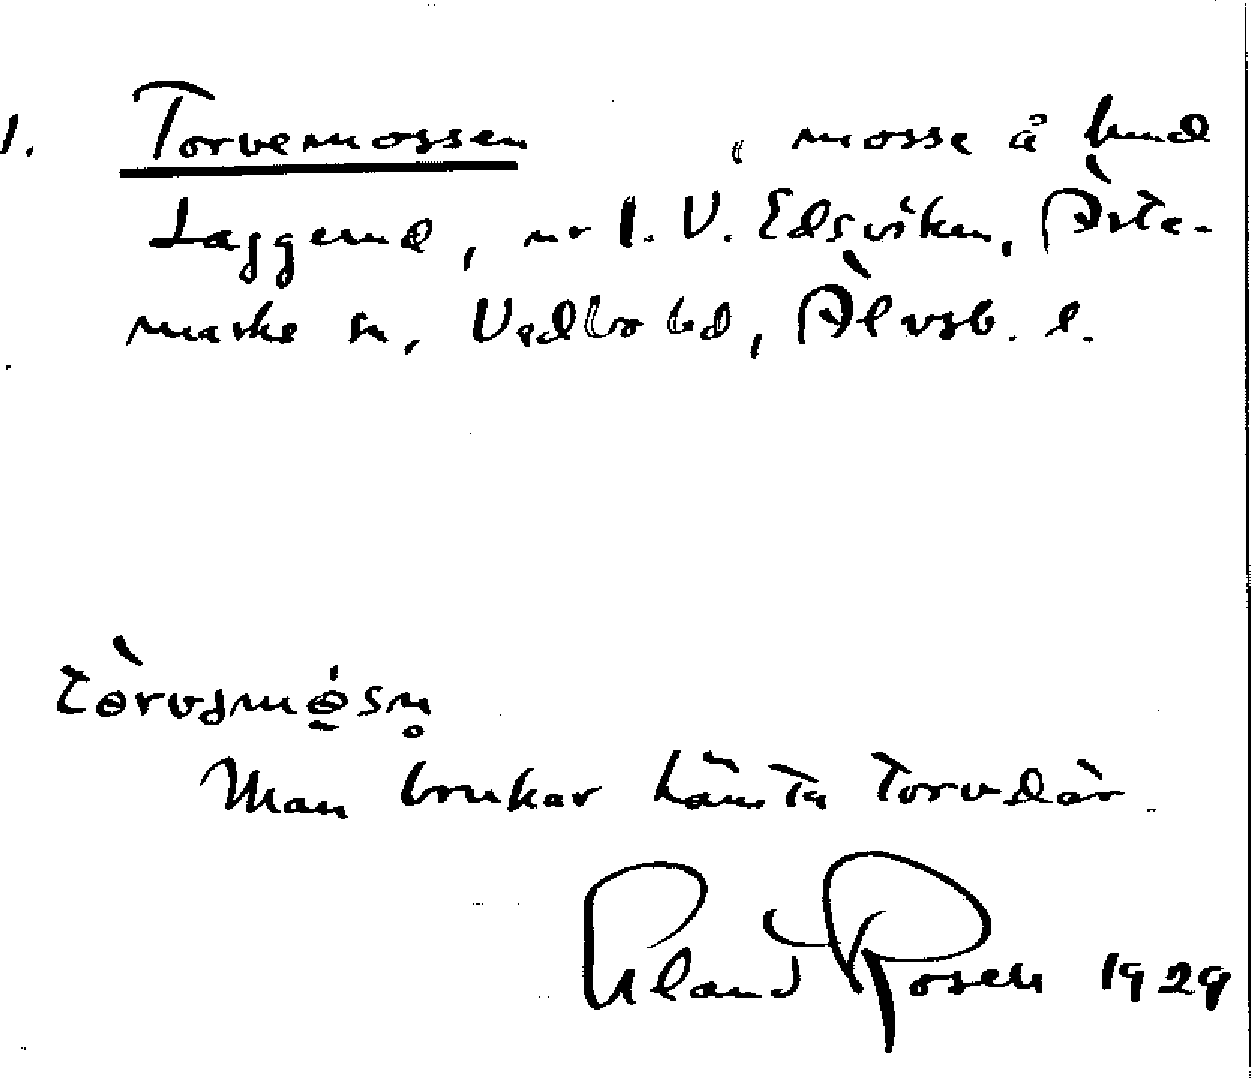 1. Torvemossen , mosse å hmd
Laggerud, nr 1. V. Edsviken, Årte-
marks sn, Vedbo hd, Älvsb. l.
tòrvəmósn̥
Man brukar hämta torv där.
Eland Rosell 1929